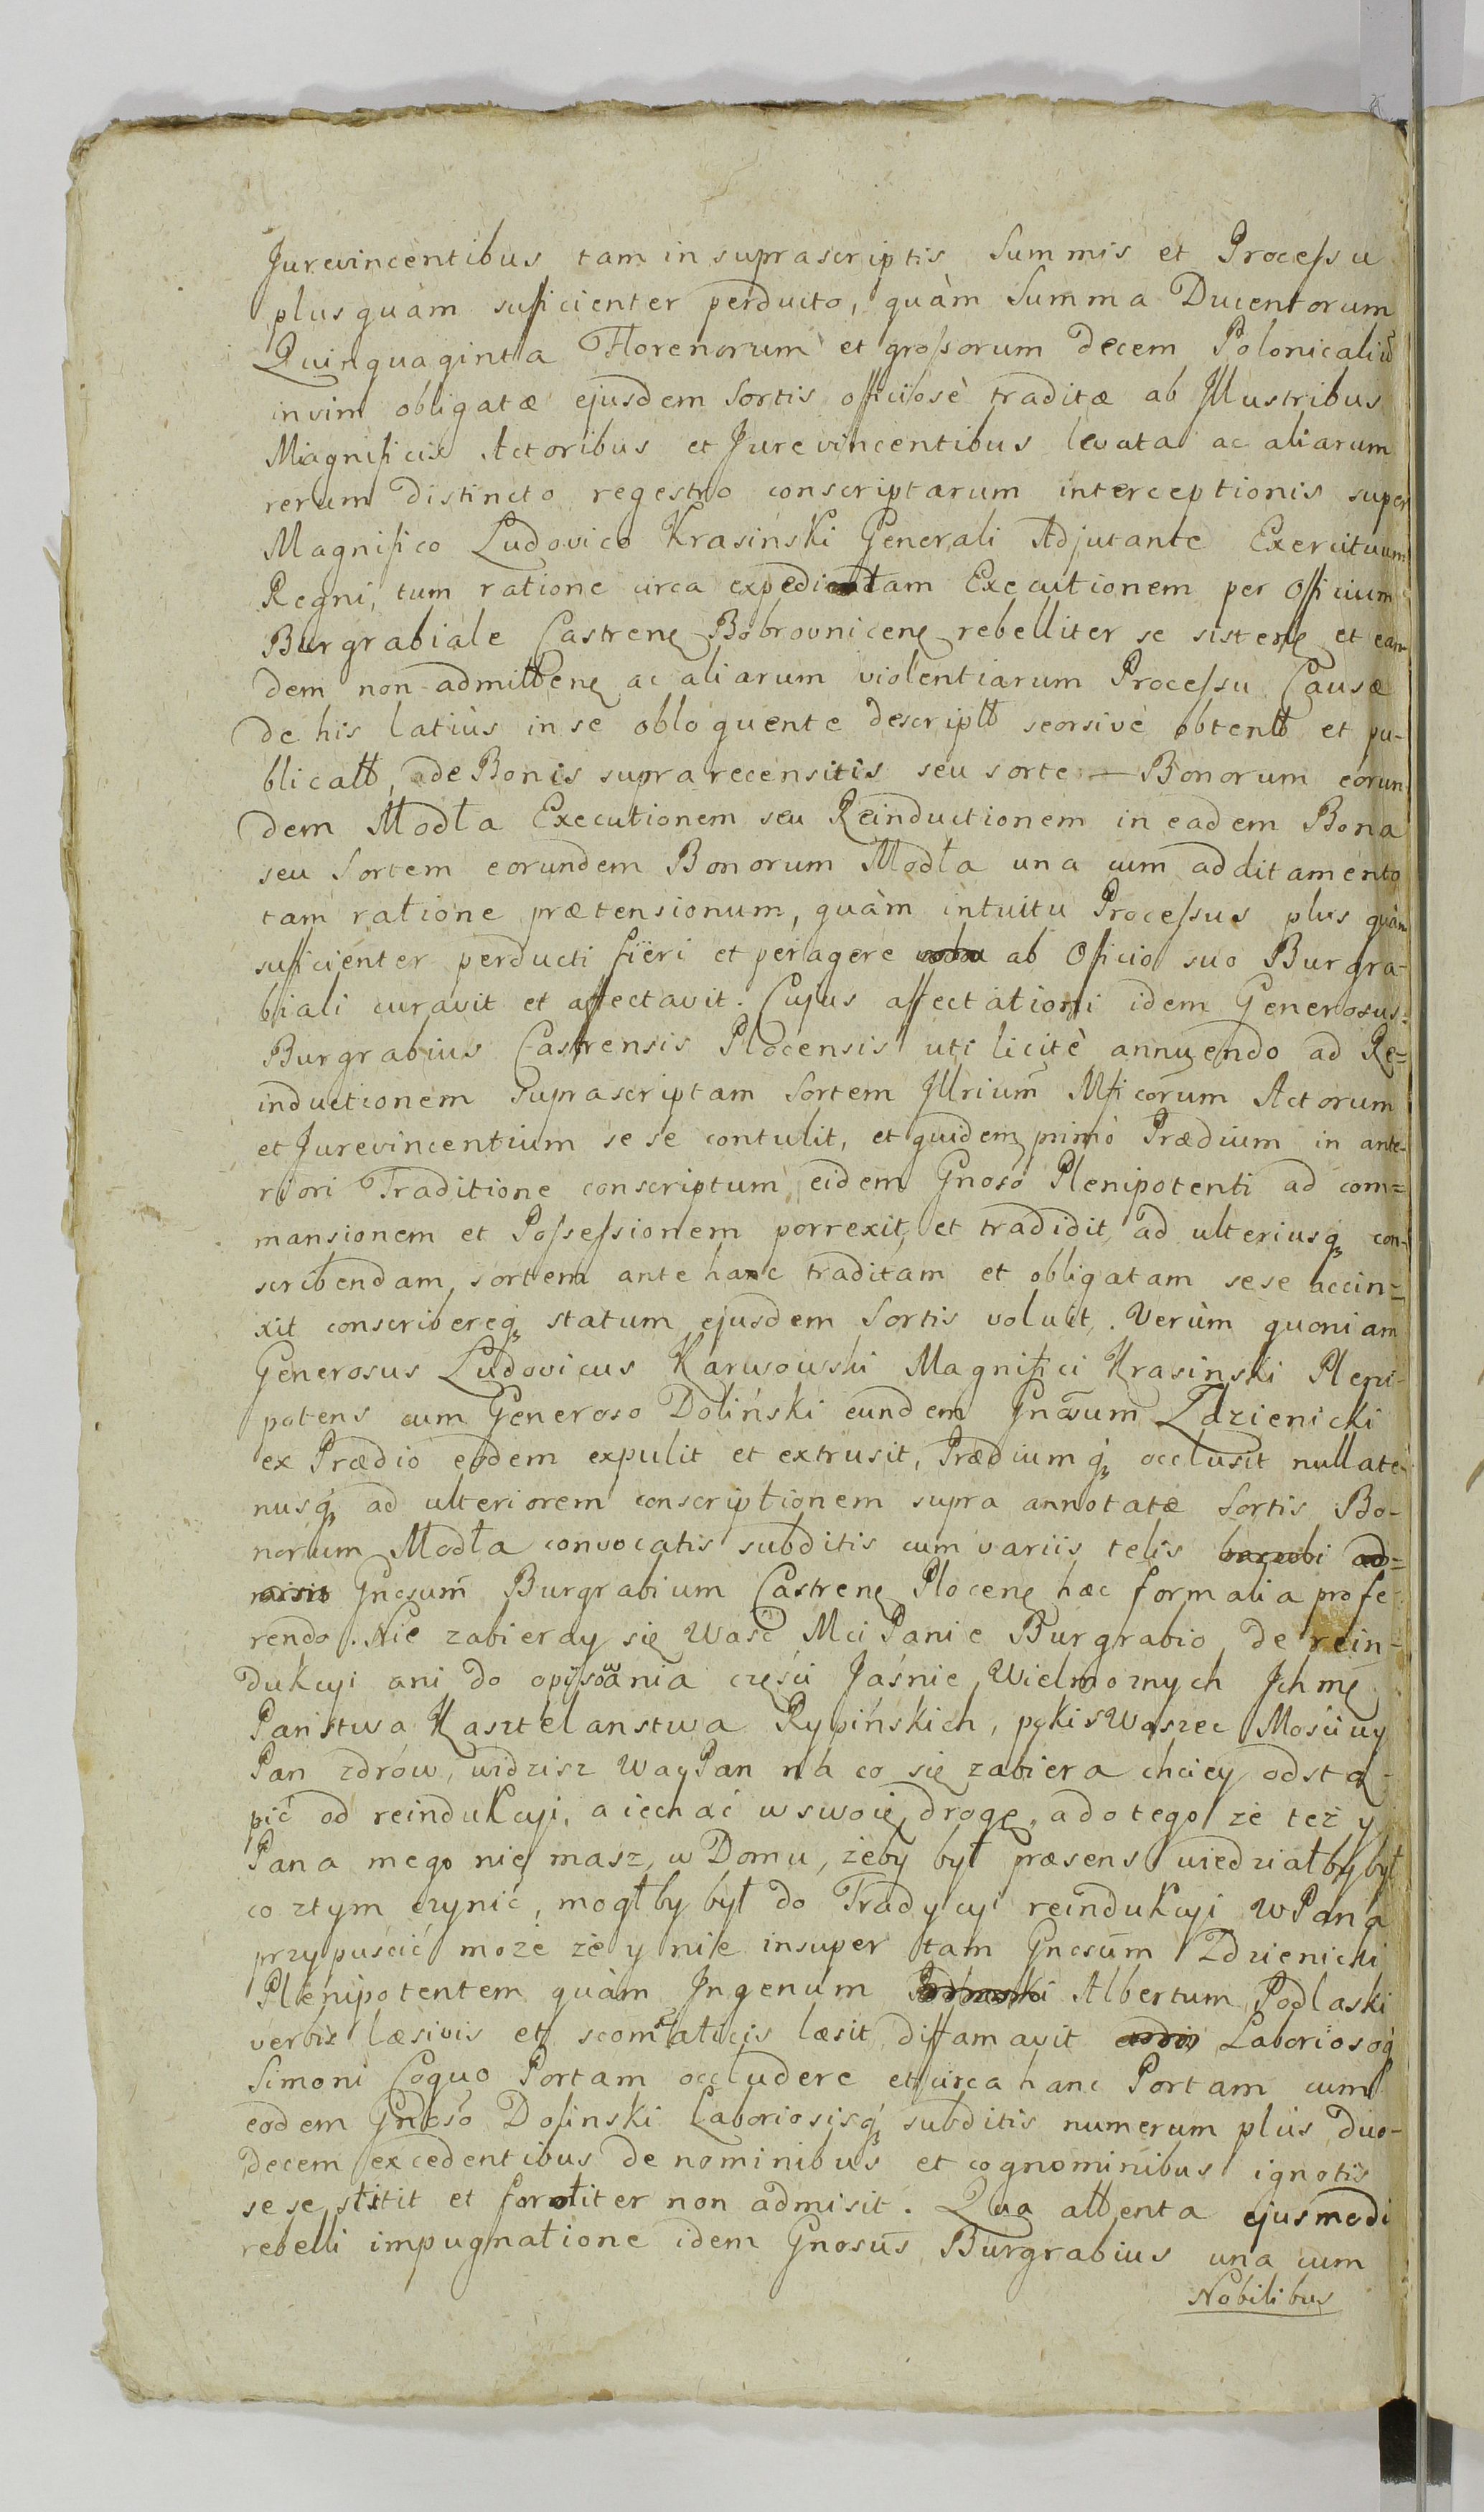 Jurevincentibus tam in suprascriptis Summis et Processu
plus quàm sufficienter perducto, quàm Summa Ducentorum
Quinquaginta Florenorum et grossorum decem Polonicaliū
in vim obligatæ ejusdem Sortis officiosè traditæ ab Illustribus
Magnificis Actoribus et Jurevincentibus levata ac aliarum
rerum distincto regestro conscriptarum interceptionis super
Magnifico Ludovico Krasiński Generali Adjutante Exercituum
Regni, tum ratione circa expeditam Executionem per Officium
Burgrabiale Castrenę Bobrovnicenę rebelliter se sistenę et ean-
dem non admittenę ac aliarum violentiarum Processu Causæ
de his latiùs in se obloquente descriptt seorsivè obtentt et pu-
blicatt, de Bonis supra recensitis seu sorte — Bonorum eorun
dem Modła Executionem seu Reinductionem in eadem Bona
seu Sortem eorundem Bonorum Modła una cum additamento
tam ratione prætensionum, quàm intuitu Processus plus quàm
sufficienter perducti fieri et peragere ab Officio suo Burgra-
biali curavit et affectavit. Cujus affectationi idem Generosus
Burgrabius Castrensis Plocensis uti licitè annuendo ad Re=
inductionem suprascriptam Sortem Illrium Mficorum Actorum
et Jurevincentium sese contulit, et quidem primò Prædium in ante-
riori Traditione conscriptum eidem Gnoso Plenipotenti ad com=
mansionem et Possessionem porrexit, et tradidit, ad ulteriusq́ con-
scribendam sortem ante hac traditam et obligatam sese accin=
xit conscribereq́ statum ejusdem Sortis voluit. Verùm quoniam
Generosus Ludovicus Karwowski Magnifici Krasinski Pleni-
potens cum Generoso Doliński eundem Gnosum Zdzienicki
ex Prædio eodem expulit et extrusit, Prædiumq́ occlusit nullate-
nusq́ ad ulteriorem conscriptionem supra annotatæ Sortis Bo-
norum Modła convocatis subditis cum variis telis
Gnosum Burgrabium Castrenę Plocenę hæc formalia profe-
rendo. Nie zabieray się Waść Mci Panie Burgrabio, de rein-
dukcyi ani do opisowania części Jaśnie Wielmoznych Ichmę
Państwa Kasztelanstwa Rypińskich, pokis Waszec Mościwy
Pan zdrów, widzisz WaęPan na co się zabiera chciey odstą-
pić od reindukcyi, a iechać w swoię drogę, a do tego ze też y
Pana mego nie masz w Domu, żeby był præsens wiedziałby był
co z tym czynić, mogłby był do Tradycyi reindukcyi WPana
przypuścić może że y nie insuper tam Gnosum Zdzienicki
Plenipotentem quàm Ingenum Albertum Podlaski
verbis læsivis et scomaticis læsit, diffamavit Laboriosoq́
Simoni Coquo Portam occludere et circa hanc Portam cum
eodem Gnoso Dolinski Laboriosisq́ subditis numerum plus duo-
decem excedentibus de nominibus et cognominibus ignotis
sese stitit et fortiter non admisit. Qua attenta ejusmodi
rebelli impugnatione idem Gnosus Burgrabius una cum
Nobilibus